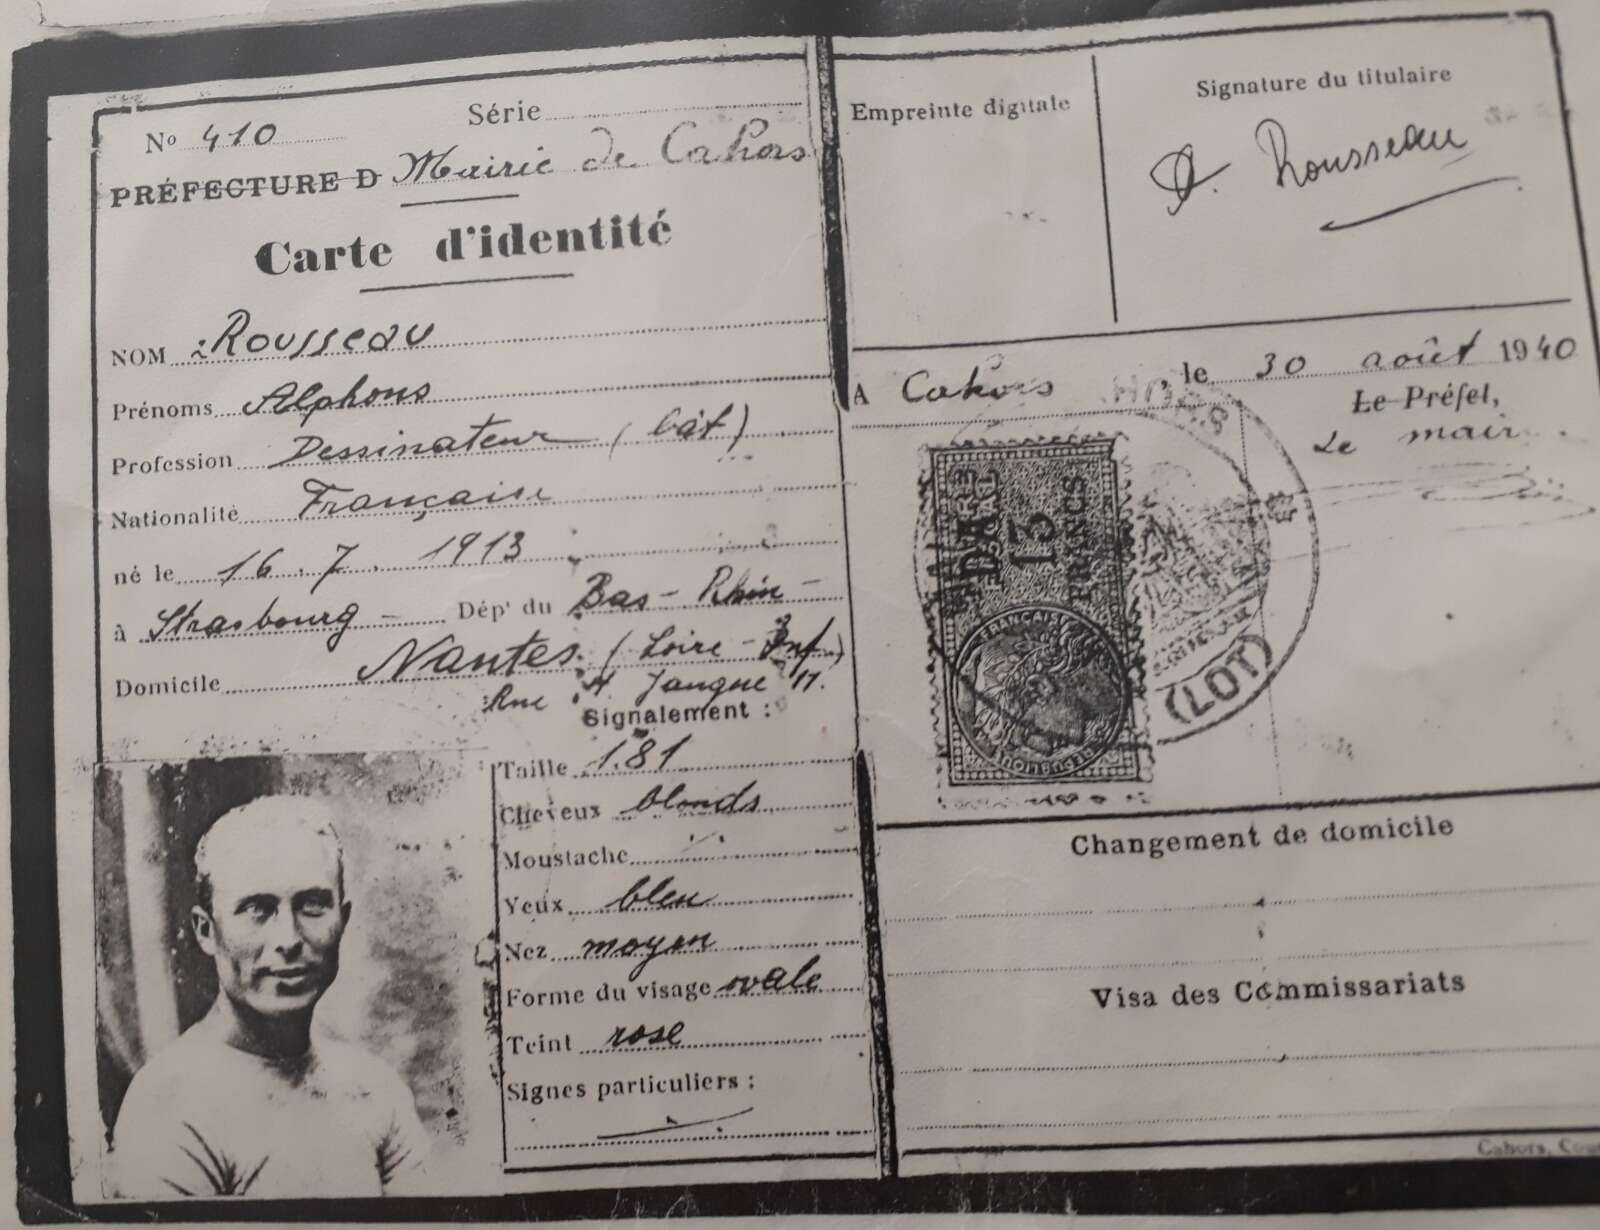 No 410
Série
PRÉFECTURE D Mairie de Cahors
Carte d'identité
NOM Rousseau
Prénoms Alphons
Profession Dessinateur (bât)
Nationalité Française
né le 16.7.1913
à Strasbourg - Dépt du Bas-Rhin-
Domicile Nantes (Loire-Inf)
Rue 17.
Signalement :
Taille 1.81
Cheveux blonds
Moustache
Yeux bleu
Nez moyen
Forme du visage ovale
Teint rose
Signes particuliers :
Empreinte digitale
Signature du titulaire
A. Rousseau
A Cahors, le 30 août 1940
Le Préfet,
Le mair
13
FRANCS
FRANÇAISE
(LOT)
Changement de domicile
Visa des Commissariats
Cahors,